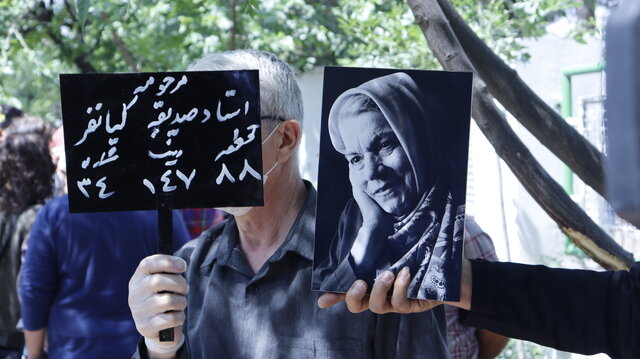 مرحومه
استاد صدیقه کیانفر
قطعه ردیف شماره
۸۸ ۱۴۷ ۳۴